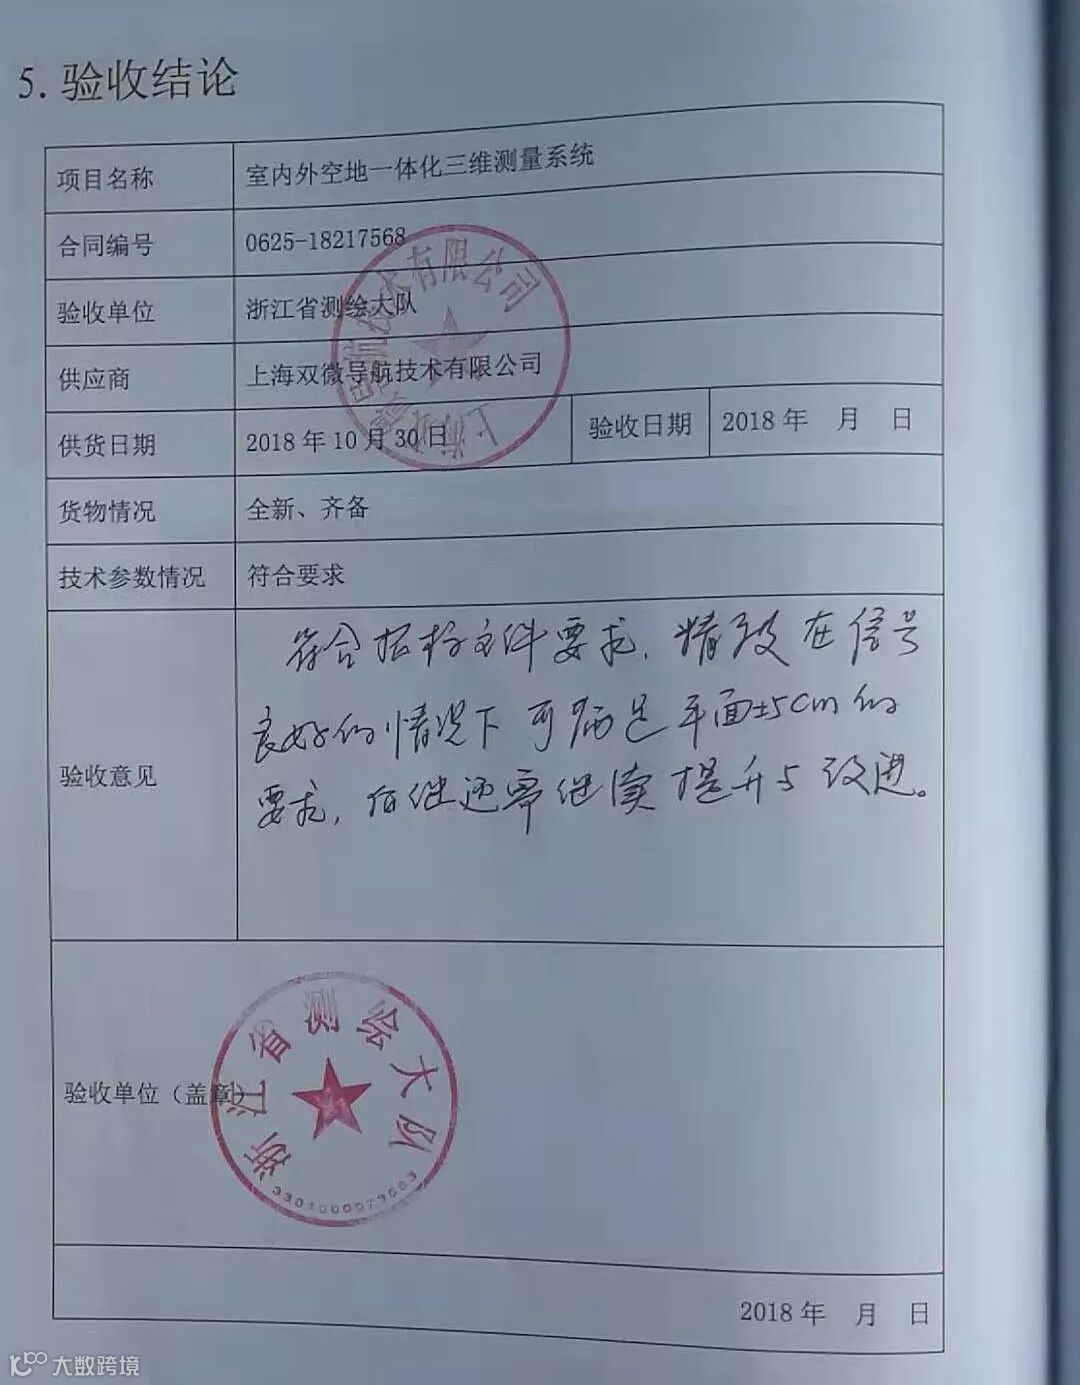 5. 验收结论
项目名称 室内外空地一体化三维测量系统
合同编号 0625-18217568
验收单位 浙江省测绘大队
供应商 上海双微导航技术有限公司
供货日期 2018 年 10 月 30 日 验收日期 2018 年 月 日
货物情况 全新、齐备
技术参数情况 符合要求
验收意见
符合招标文件要求，精度在信号
良好的情况下可满足平面±5cm的
要求，后继还需继续提升与改进。
上海双微导航技术有限公司
验收单位（盖章）
浙江省测绘大队
2018 年 月 日
大数跨境